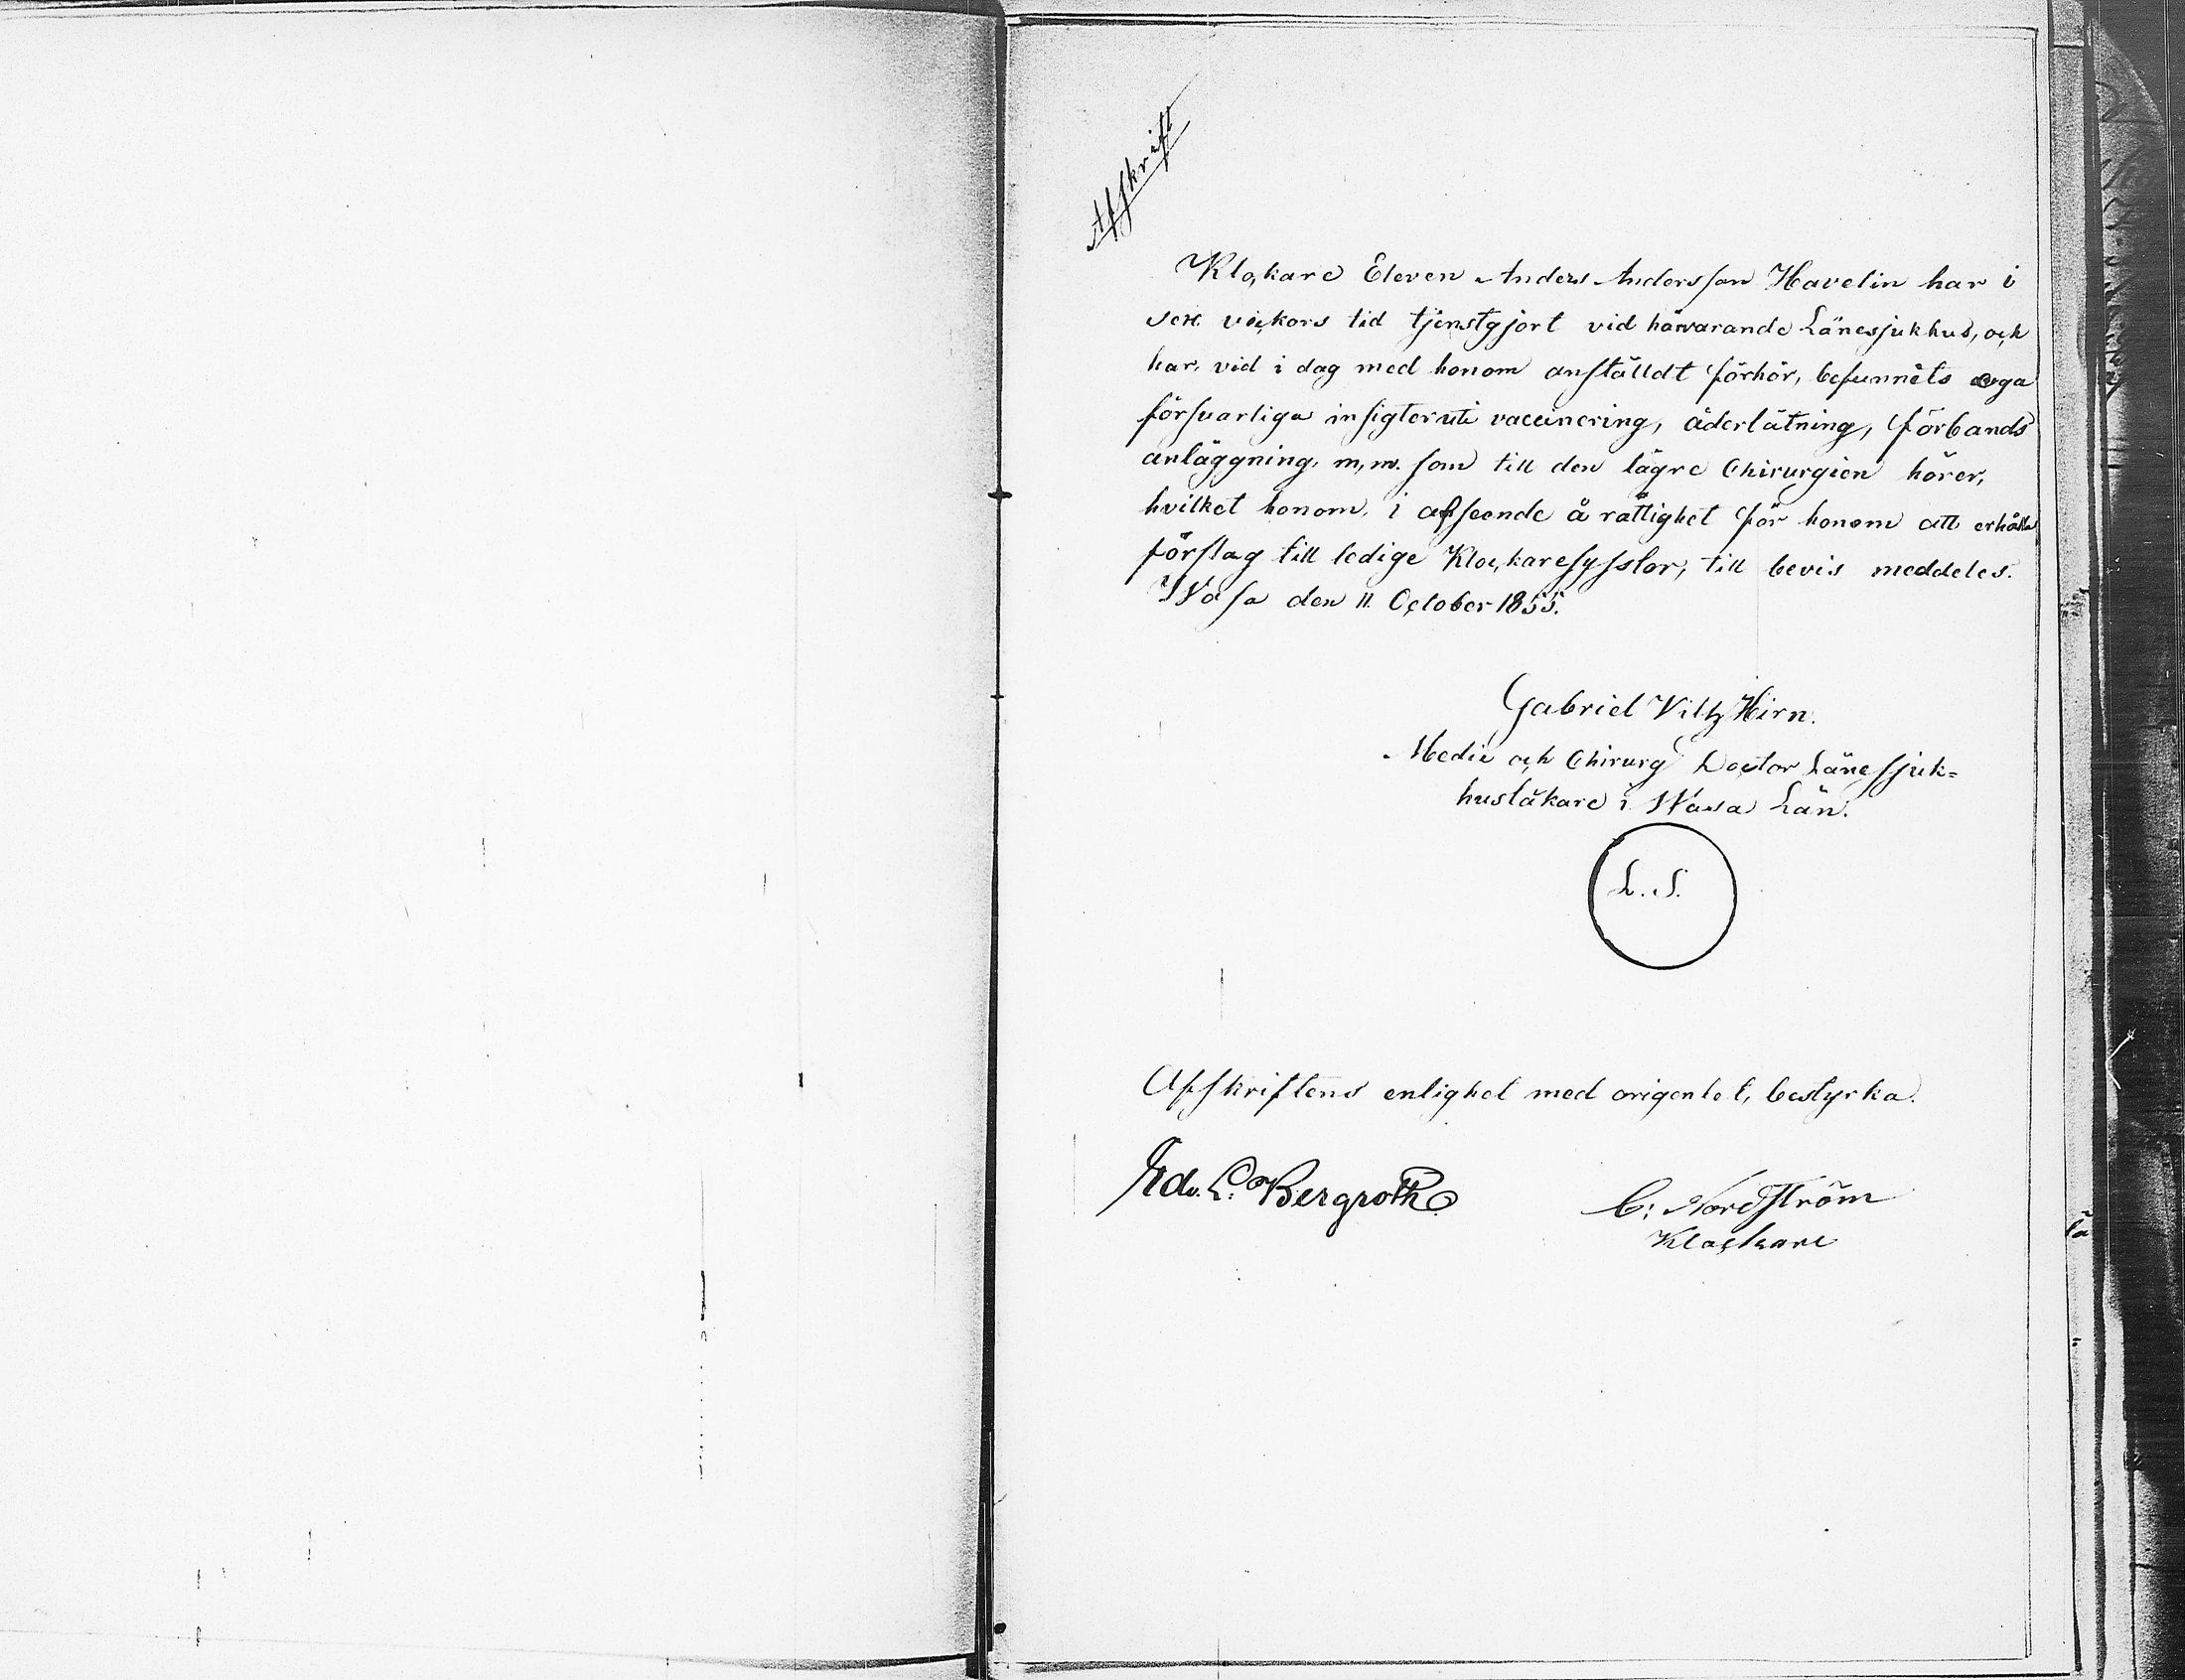 Afskrift
Klockare Eleven Anders Andersson Havelin har i
sex veckors tid tjenstgjort vid härvarande Länesjukhus, och
har, vid i dag med honom anstäldt förhör, befunnits ega
försvarliga insigter uti vaccinering, åderlåtning, förbands
anläggning, m, m. som till den lägre Chirurgien hörer,
hvilket honom, i afseende å rättighet för honom att erhålla
förslag till ledige Klockaresysslor, till bevis meddeles.
Wasa den 11. October 1855.
Gabriel Hirn.
Medic och Chirurg Doctor Länessjuk=
husläkare i Wasa Län.
L. S.
Afskriftens enlighet med origenlet, bestyrka.
Edv. L. Bergroth
C: Nordström
Klockare